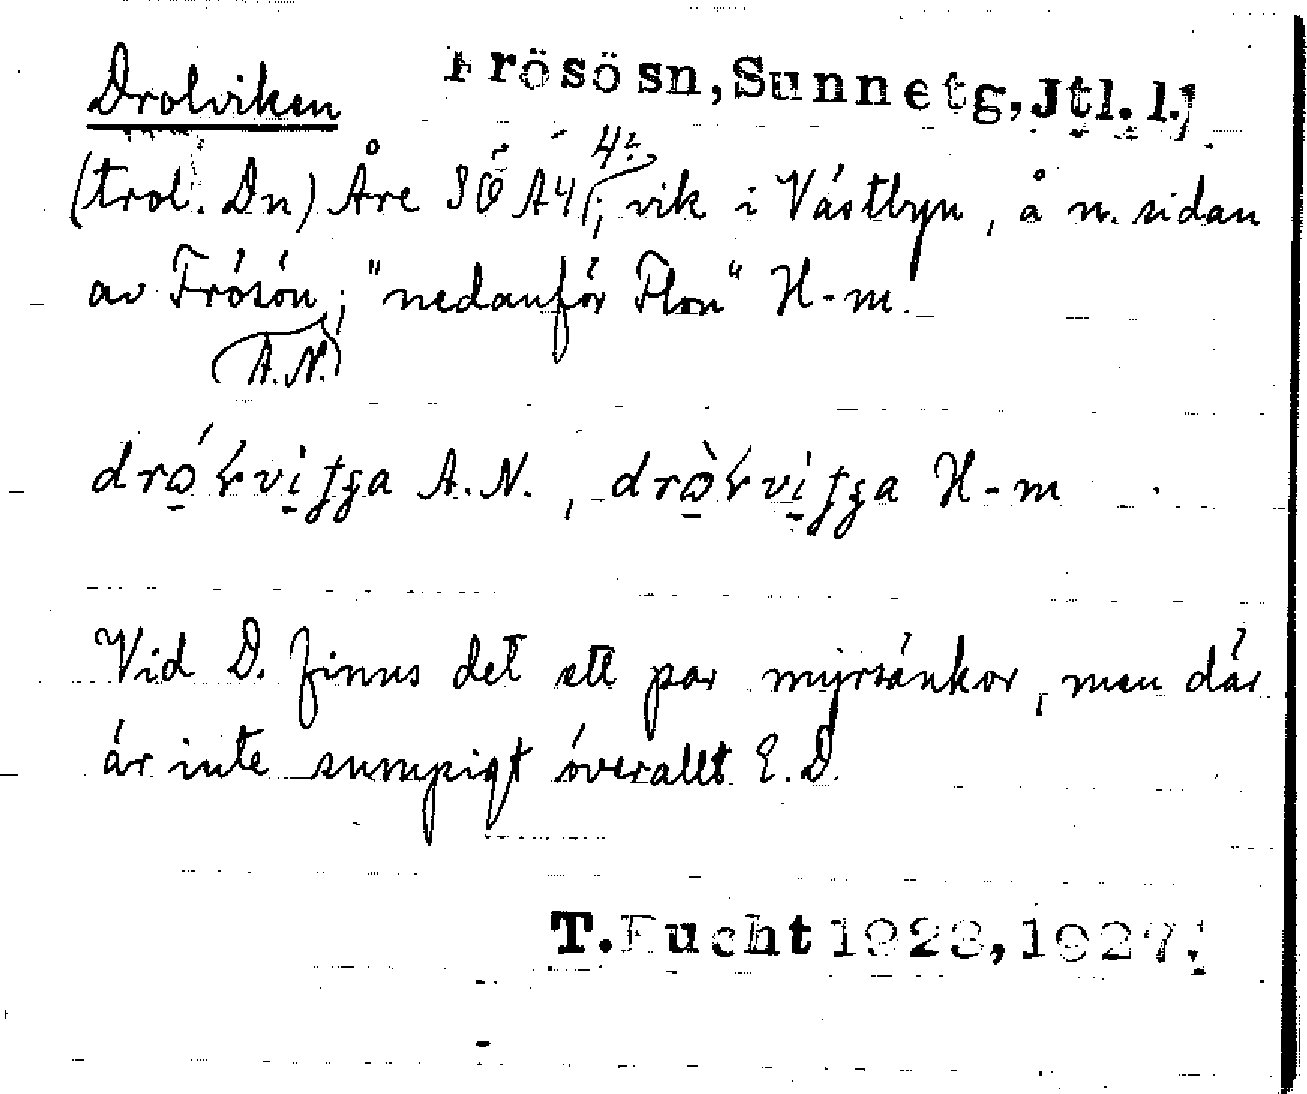 Drolviken Frösö sn, Sunne tg, Jtl. l.
(trol. Dn) Åre SÖ A4, 4:; vik i Västbyn, å n. sidan
av Frösön; "nedanför Flon" H-m.
A.N.
A.N., H-m
Vid D. finns det ett par myrsänkor, men där
är inte sumpigt överallt E.D.
T. Fucht 1923, 1927.